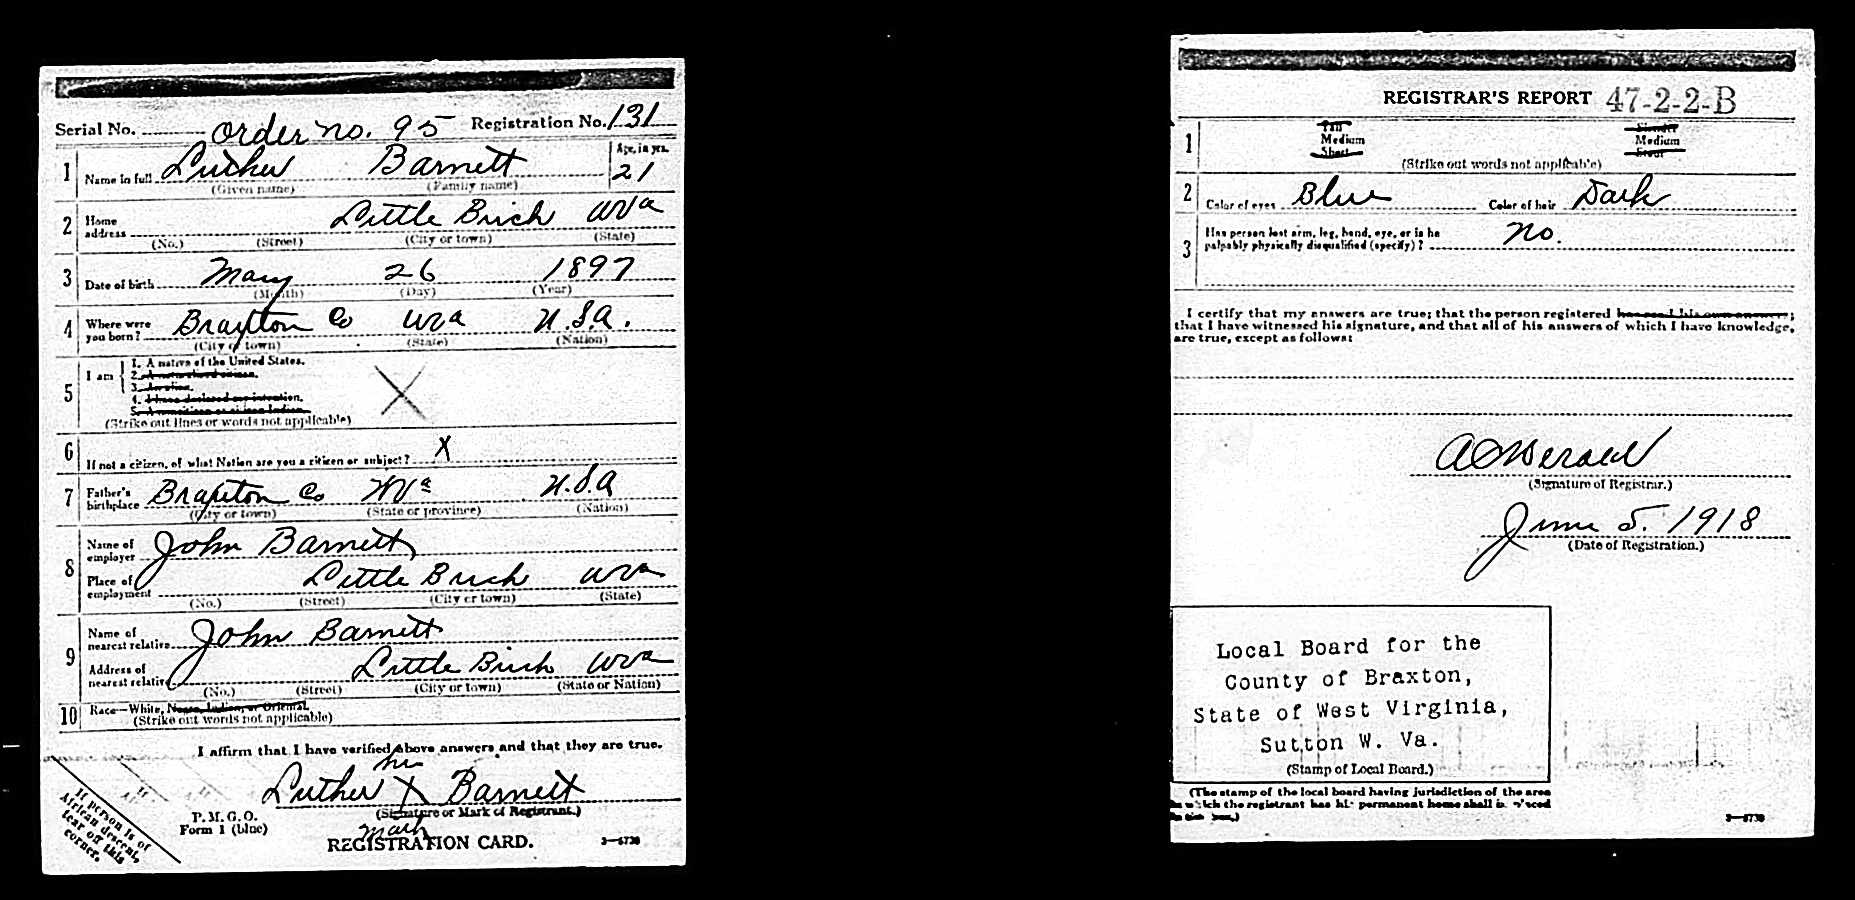 Serial No. Order no. 95 Registration No. 131
1 Name in full Luther Barnett Age, in yrs. 21
(Given name) (Family name)
2 Home address Little Birch WVa
(No.) (Street) (City or town) (State)
3 Date of birth May 26 1897
(Month) (Day) (Year)
4 Where were you born? Braxton Co WVa U.S.A.
(City or town) (State) (Nation)
5 I am
1. A native of the United States.
2. A naturalized citizen.
3. An alien.
4. I have declared my intention.
5. A noncitizen or citizen Indian.
(Strike out lines or words not applicable)
6 If not a citizen, of what Nation are you a citizen or subject? X
7 Father's birthplace Braxton Co WVa U.S.A
(City or town) (State or province) (Nation)
8 Name of employer John Barnett
Place of employment Little Birch WVa
(No.) (Street) (City or town) (State)
9 Name of nearest relative John Barnett
Address of nearest relative Little Birch WVa
(No.) (Street) (City or town) (State or Nation)
10 Race—White, Negro, Indian, or Oriental.
(Strike out words not applicable)
I affirm that I have verified above answers and that they are true.
his
Luther X Barnett
(Signature or Mark of Registrant.)
mark
P. M. G. O.
Form 1 (blue)
REGISTRATION CARD. 3—6730
If person is of
African descent,
tear off this
corner.
REGISTRAR'S REPORT 47-2-2-B
1 Tall Slender
Medium Medium
Short Stout
(Strike out words not applicable)
2 Color of eyes Blue Color of hair Dark
3 Has person lost arm, leg, hand, eye, or is he
palpably physically disqualified (specify)? no.
I certify that my answers are true; that the person registered has read his own answers;
that I have witnessed his signature, and that all of his answers of which I have knowledge,
are true, except as follows:
(Signature of Registrar.)
June 5. 1918
(Date of Registration.)
Local Board for the
County of Braxton,
State of West Virginia,
Sutton W. Va.
(Stamp of Local Board.)
(The stamp of the local board having jurisdiction of the area
in which the registrant has his permanent home shall be placed
in this box.)
3—6730